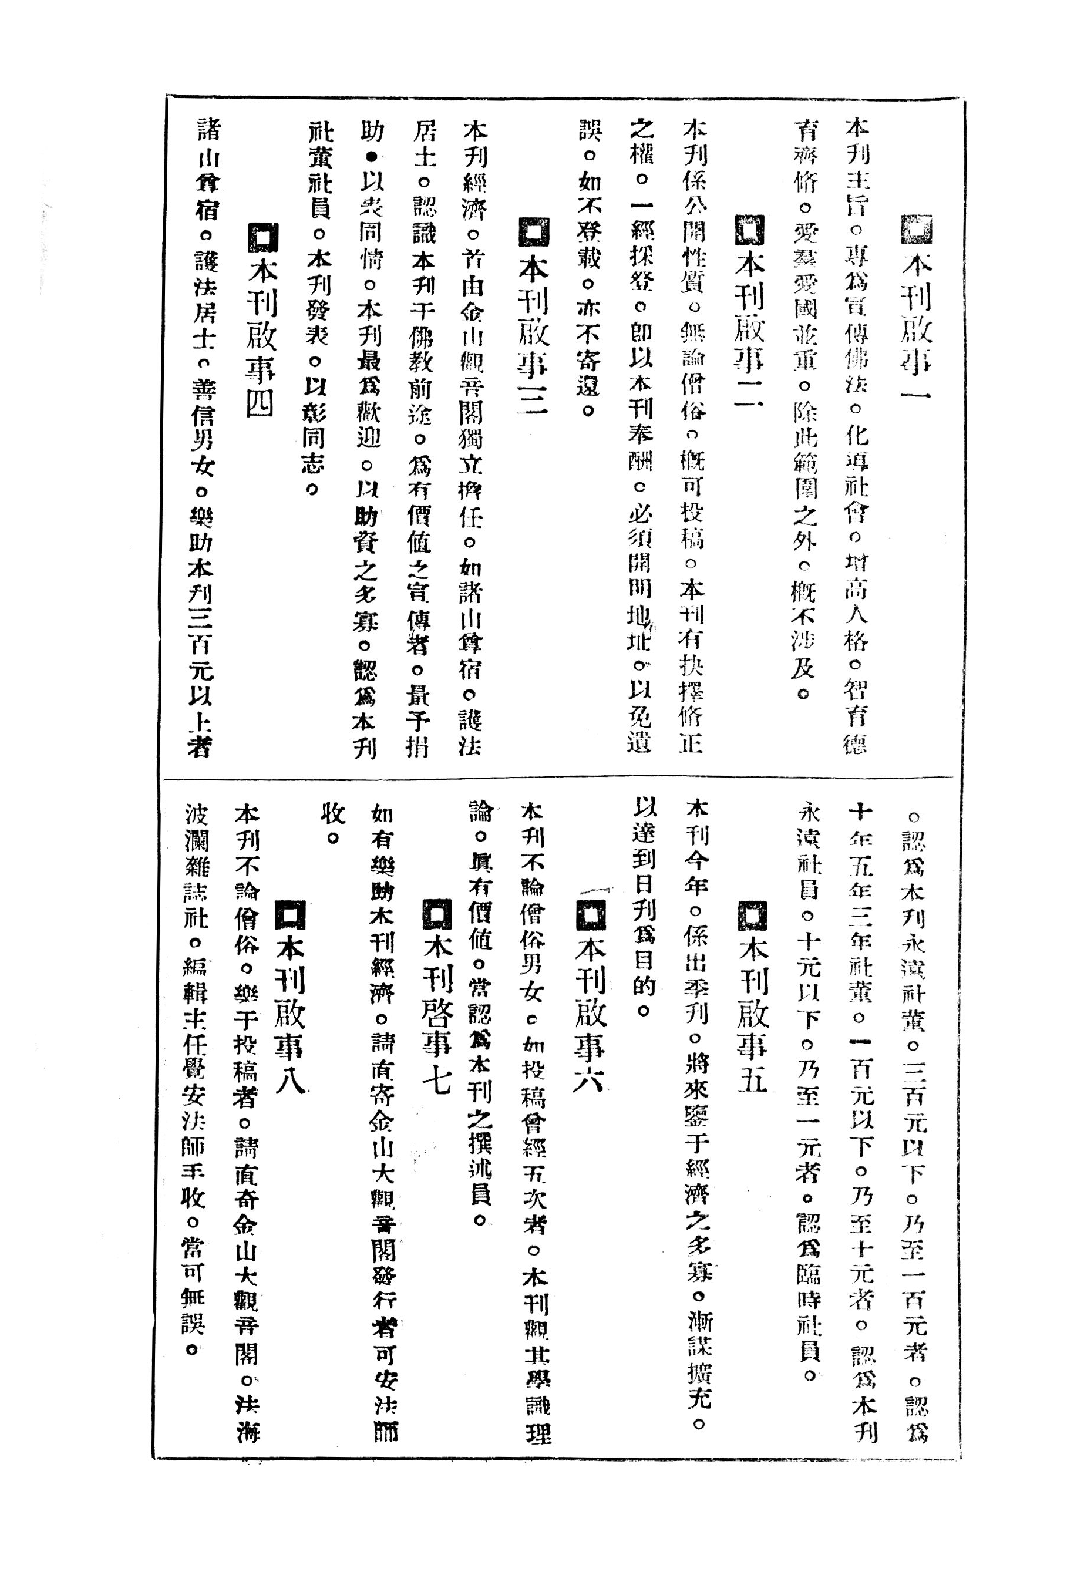 本刊啟事一
本刊主旨。專爲宣傳佛法。化導社會。增高人格。智育德
育齊修。愛羣愛國並重。除此範圍之外。槪不涉及。
本刊啟事二
本刊係公開性質。無論僧俗。槪可投稿。本刊有抉擇修正
之權。一經採登。卽以本刊奉酬。必須開明地址。以免遺
誤。如不登載。亦不寄還。
本刊啟事三
本刊經濟。首由金山觀音閣獨立擔任。如諸山尊宿。護法
居士。認識本刊于佛教前途。爲有價値之宣傳者。量予捐
助●以表同情。本刊最爲歡迎。以助資之多寡。認爲本刊
社董社員。本刊發表。以彰同志。
本刊啟事四
諸山尊宿。護法居士。善信男女。樂助本刊三百元以上者
。認爲本刊永遠社董。三百元以下。乃至一百元者。認爲
十年五年三年社董。一百元以下。乃至十元者。認爲本刊
永遠社員。十元以下。乃至一元者。認爲臨時社員。
本刊啟事五
本刊今年。係出季刊。將來鑒于經濟之多寡。漸謀擴充。
以達到日刊爲目的。
本刊啟事六
本刊不論僧俗男女。如投稿曾經五次者。本刊觀其學識理
論。眞有價値。當認爲本刊之撰述員。
本刊啓事七
如有樂助本刊經濟。請直寄金山大觀音閣發行者可安法師
收。
本刊啟事八
本刊不論僧俗。樂于投稿者。請直奇金山大觀音閣。法海
波瀾雜誌社。編輯主任覺安法師手收。當可無誤。